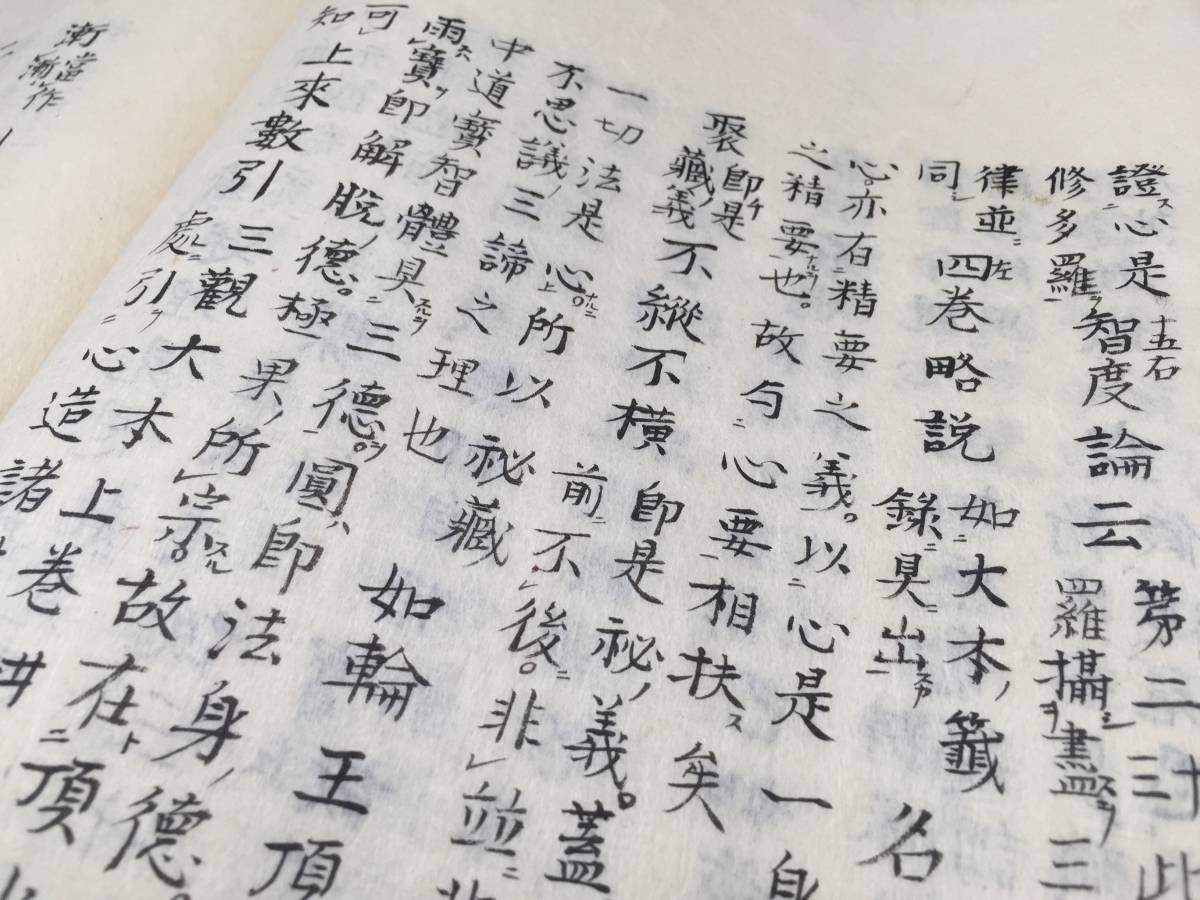 證心是十五右第二三寸此
修多羅智度論云羅攝盡三
律並左四卷略説如大本ノ籤名
同錄具出
心亦右精要之義。以心是一身
之精要也。故与心要相扶矣
聚即是藏義不縱不橫即是祕ノ義。蓋
一切法是心。所以祕藏前不後。非並非
不思議ノ三諦之理也如輪王頂
中道寶智體具三德圓即法身ノ德。
雨寶即解脱ノ德。極果ノ所宗。故在頂
可知上來數引三觀大本上卷
處引心造諸
漸當
漸作